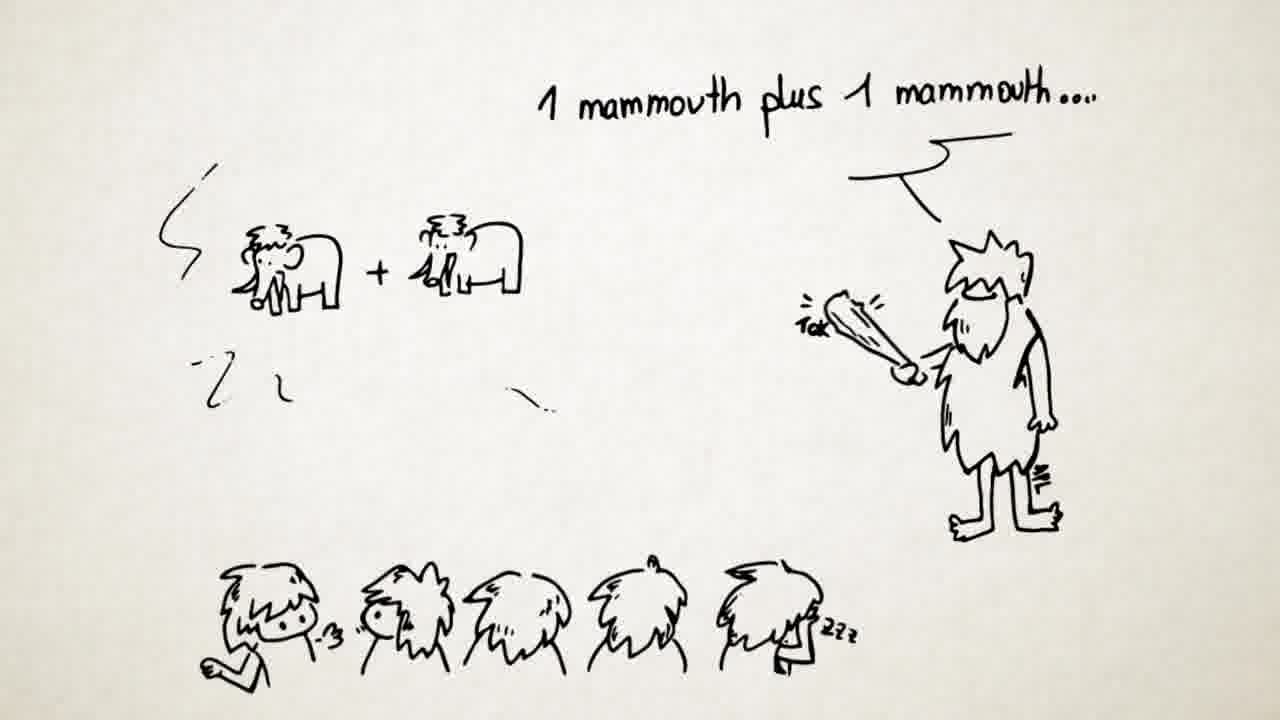 1 mammouth plus 1 mammouth....
+
Tok
zzz